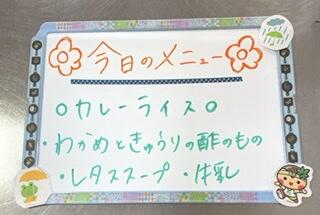 今日のメニュー
○カレーライス○
・わかめときゅうりの酢のもの
・レタススープ ・牛乳